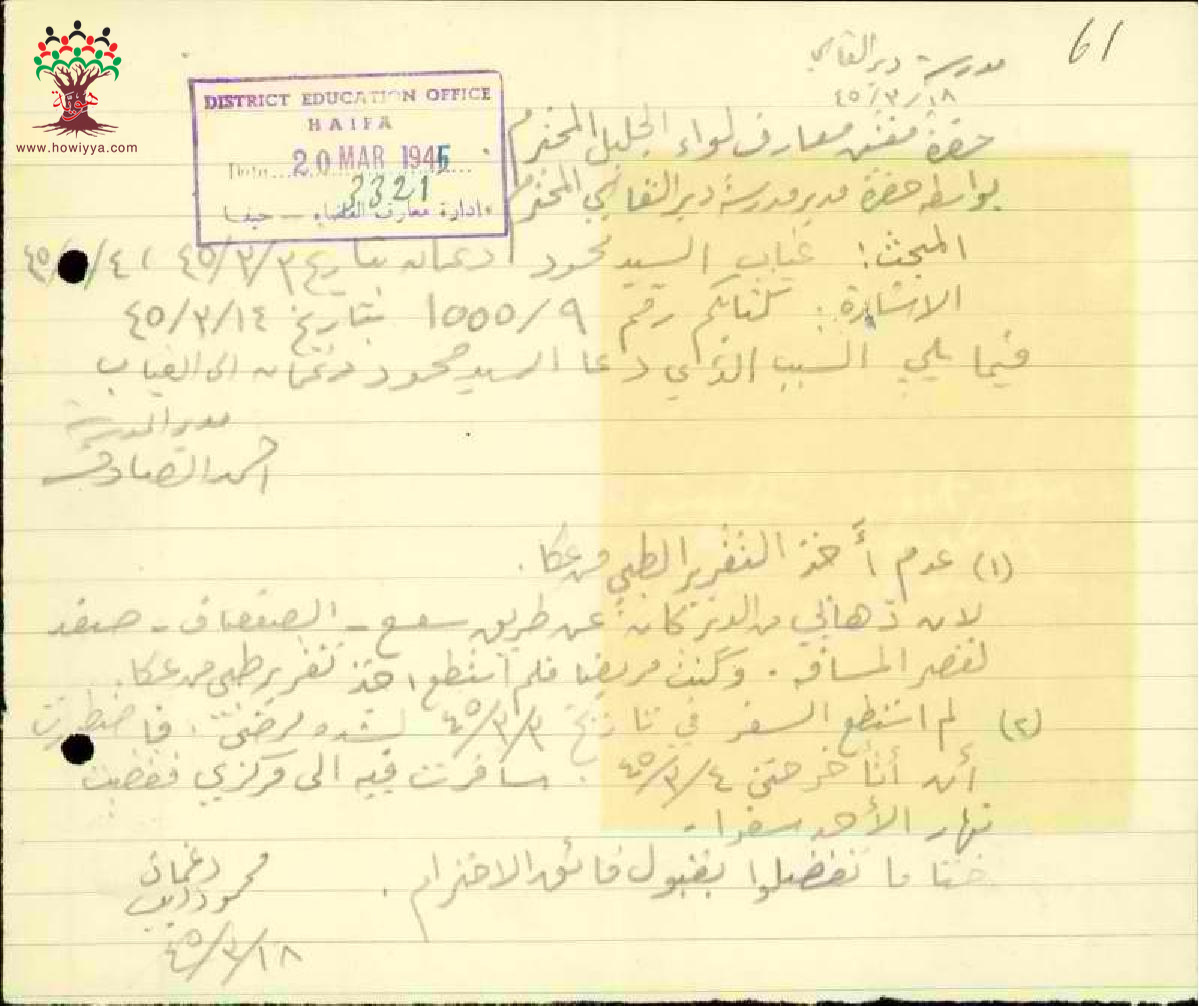 61
مدرسة دير القاسي
٤٥/٣/١٨
حضرة مفتش معارف لواء الجليل المحترم
بواسطة حضرة مدير مدرسة دير القاسي المحترم
DISTRICT EDUCATION OFFICE
HAIFA
Date 20 MAR 1945
3321
ادارة معارف القضاء - حيفا
هوية
www.howiyya.com
المبحث: غياب السيد محمود دغمان بتاريخ ٤٥/٣/٣، ٤
الاشارة: كتابكم رقم 1000/٩ بتاريخ ٤٥/٣/١٤
فيما يلي السبب الذي دعا السيد محمود دغمان الى الغياب
مدير المدرسة
احمد الصادق
(١) عدم أخذ التقرير الطبي من عكا.
لان ذهابي من الدير كان عن طريق سعسع - الصفصاف - صفد
لقصر المسافة. وكنت مريضا فلم استطع اخذ تقرير طبي من عكا.
(٢) لم استطع السفر في تاريخ ٤٥/٣/٣ لشدة مرضي، فاضطررت
أن أتأخر حتى ٤٥/٣/٤. سافرت فيه الى مركزي فقضيت
نهار الأحد سفرا.
ختاما تفضلوا بقبول فائق الاحترام.
محمود دغمان
٤٥/٣/١٨